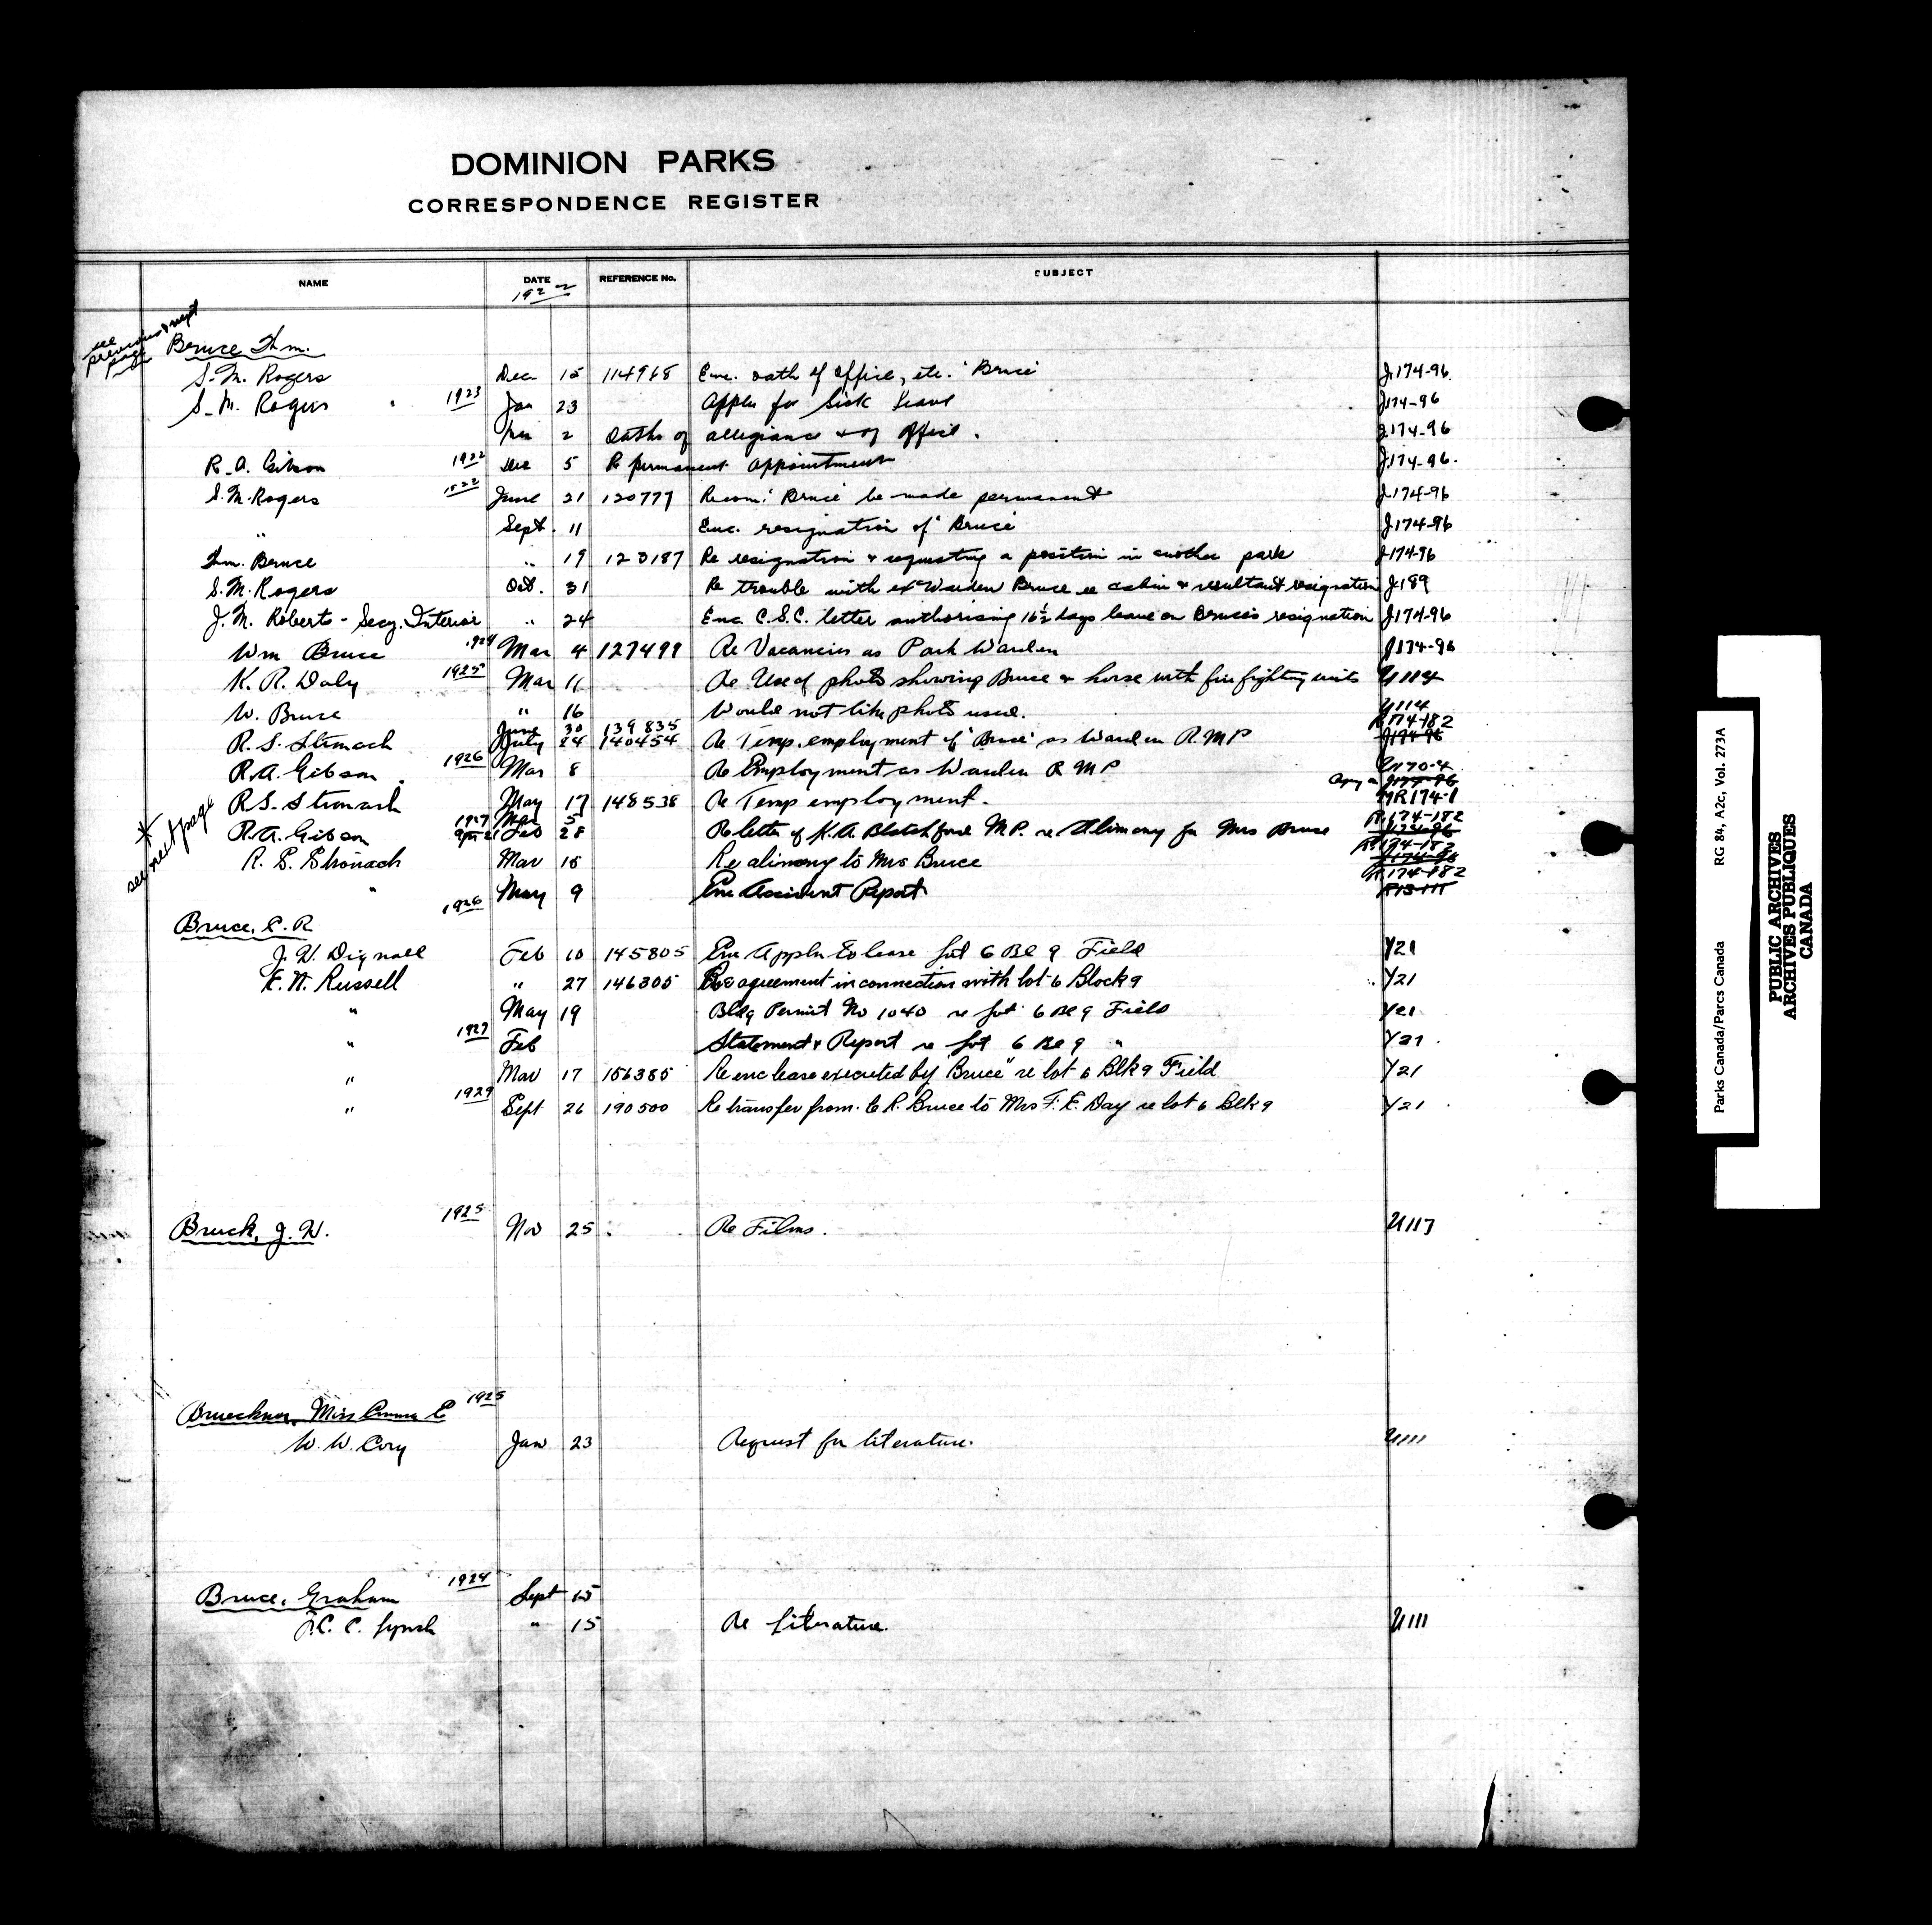 DOMINION PARKS
CORRESPONDENCE REGISTER
NAME DATE REFERENCE No. SUBJECT
1922
see previous & next page
Bruce Wm.
S. M. Rogers Dec. 15 114968 Enc. oath of office, etc. 'Bruce' J.174-96.
S. M. Rogers 1923 Jan 23 Appln for Sick Leave J174-96
2 Oaths of allegiance & of office. J.174-96
R. A. Gibson 1922 Dec 5 Re permanent appointment J.174-96.
S. M. Rogers June 21 120777 Recom. 'Bruce' be made permanent J.174-96
" Sept. 11 Enc. resignation of 'Bruce' J.174-96
Wm. Bruce " 19 120187 Re resignation & requesting a position in another park J174-96
S. M. Rogers Oct. 31 Re trouble with ex Warden Bruce re cabin & resultant resignation J189
J. M. Roberts - Secy. Interior " 24 Enc. C.S.C. letter authorising 16½ days leave on Bruce's resignation J174-96
Wm Bruce 1924 Mar 4 127499 Re Vacancies as Park Warden J174-96
K. R. Daly 1925 Mar 11 Re Use of photo showing Bruce & horse with fire fighting units U114
W. Bruce " 16 Would not like photo used. U114
June 30 139835 R174-182
R. S. Stronach July 24 140454 Re Temp. employment of 'Bruce' as Warden R.M.P J174-96
R. A. Gibson 1926 Mar 8 Re Employment as Warden R M P U170-4
J174-96
R. S. Stronach May 17 148538 Re Temp employment. MR174-1
1927 Mar 5 R.174-182
R. A. Gibson Feb 28 Re letter of K. A. Blatchford M.P. re Alimony for Mrs Bruce J174-96
R.174-182
R. S. Stronach Mar 15 Re alimony to Mrs Bruce J174-96
R.174-182
" May 9 Enc Accident Report
* see next page
Bruce, C. R 1926
J. H. Dignall Feb 10 145805 Enc Appln to lease Lot 6 Bl 9 Field Y21
E. N. Russell " 27 146305 Re agreement in connection with lot 6 Block 9 Y21
" May 19 Bldg Permit No 1040 re Lot 6 Bl 9 Field Y21
" 1927 Feb Statement & Report re Lot 6 Bl 9 " Y21
" Mar 17 156385 Re enc lease executed by "Bruce" re lot 6 Blk 9 Field Y21
" 1929 Sept 26 190500 Re transfer from C R. Bruce to Mrs F. E. Day re lot 6 Blk 9 Y21
Bruck, J. W. 1925 Nov 25 Re Films. U117
Brueckner, Miss Emma E 1925
W. W. Cory Jan 23 Request for literature. U111
Bruce, Graham 1924 Sept 15
F. C. C. Lynch " 15 Re Literature. U111
Parks Canada/Parcs Canada RG 84, A2c, Vol. 273A
PUBLIC ARCHIVES
ARCHIVES PUBLIQUES
CANADA